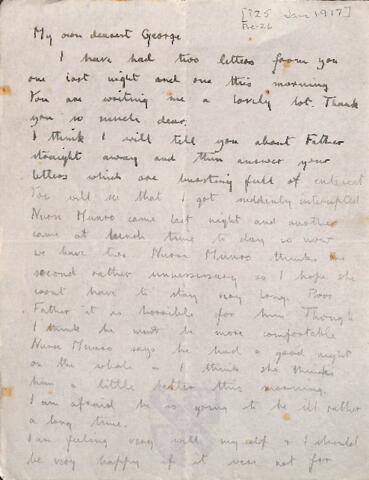 [?25 Jan 1917]
My own dearest George
I have had two letters from you
one last night and one this morning
You are writing me a lovely lot. Thank
you so much dear.
I think I will tell you about Father
straight away and then answer your
letters which are bursting full of interest
You will see that I got suddenly interrupted
Nurse Munro came last night and another
came at lunch time to day so now
we have two Nurse Munro thinks the
second rather unnecessary so I hope she
wont have to stay very long. Poor
Father it is horrible for him Though
I think he must be more comfortable
Nurse Munro says he had a good night
on the whole & I think she thinks
him a little better this morning.
I am afraid he is going to be ill rather
a long time.
I am feeling very well myself & I should
be very happy if it were not for